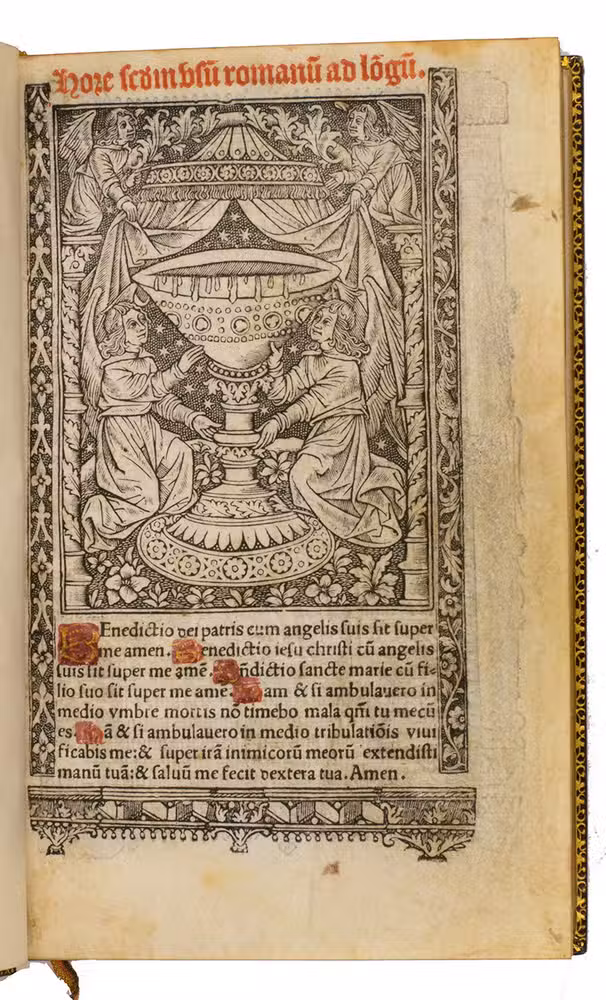 Hore scd'm vsū romanū ad lōgū.
BEnedictio dei patris cum angelis suis sit super
me amen. Benedictio iesu christi cū angelis
suis sit super me amē. Bñdictio sancte marie cū fi-
lio suo sit super me amē. Nam & si ambulauero in
medio vmbre mortis nō timebo mala qm̄ tu mecū
es. Nā & si ambulauero in medio tribulatiōis viui
ficabis me: & super irā inimicorū meorū extendisti
manū tuā: & saluū me fecit dextera tua. Amen.